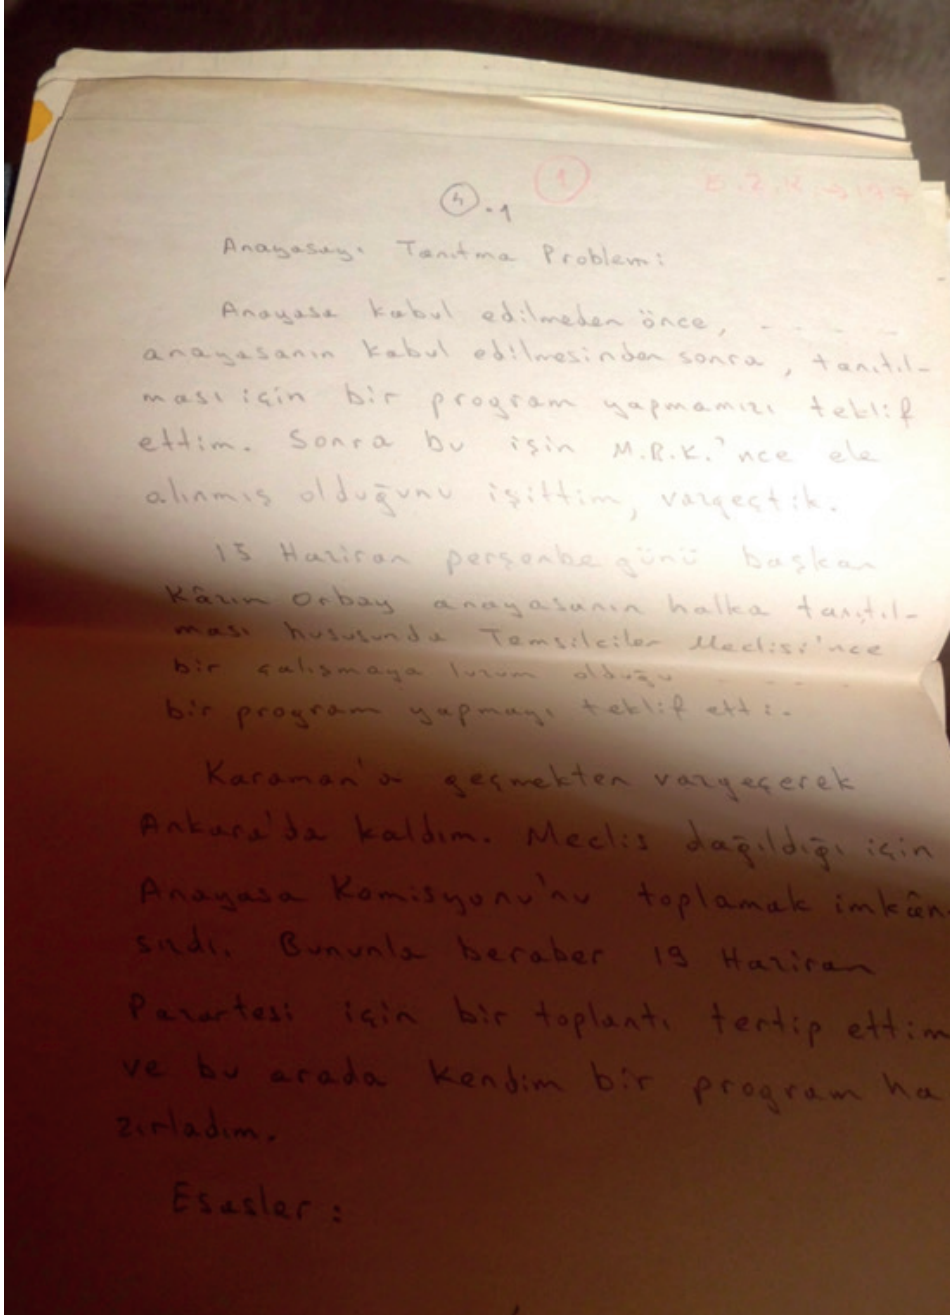 4.1
1
B.Z.K. → 177
Anayasayı Tanıtma Problemi
Anayasa kabul edilmeden önce, - - - -
anayasanın kabul edilmesinden sonra, tanıtıl-
ması için bir program yapmamızı teklif
ettim. Sonra bu işin M.B.K.'nce ele
alınmış olduğunu işittim, vazgeçtik.
15 Haziran perşenbe günü başkan
Kâzım Orbay anayasanın halka tanıtıl-
ması hususunda Temsilciler Meclisi'nce
bir çalışmaya luzum olduğu - - - -
bir program yapmayı teklif etti.
Karaman'a geçmekten vazgeçerek
Ankara'da kaldım. Meclis dağıldığı için
Anayasa Komisyonu'nu toplamak imkân
sızdı. Bununla beraber 19 Haziran
Pazartesi için bir toplantı tertip ettim
ve bu arada kendim bir program ha
zırladım.
Esaslar :